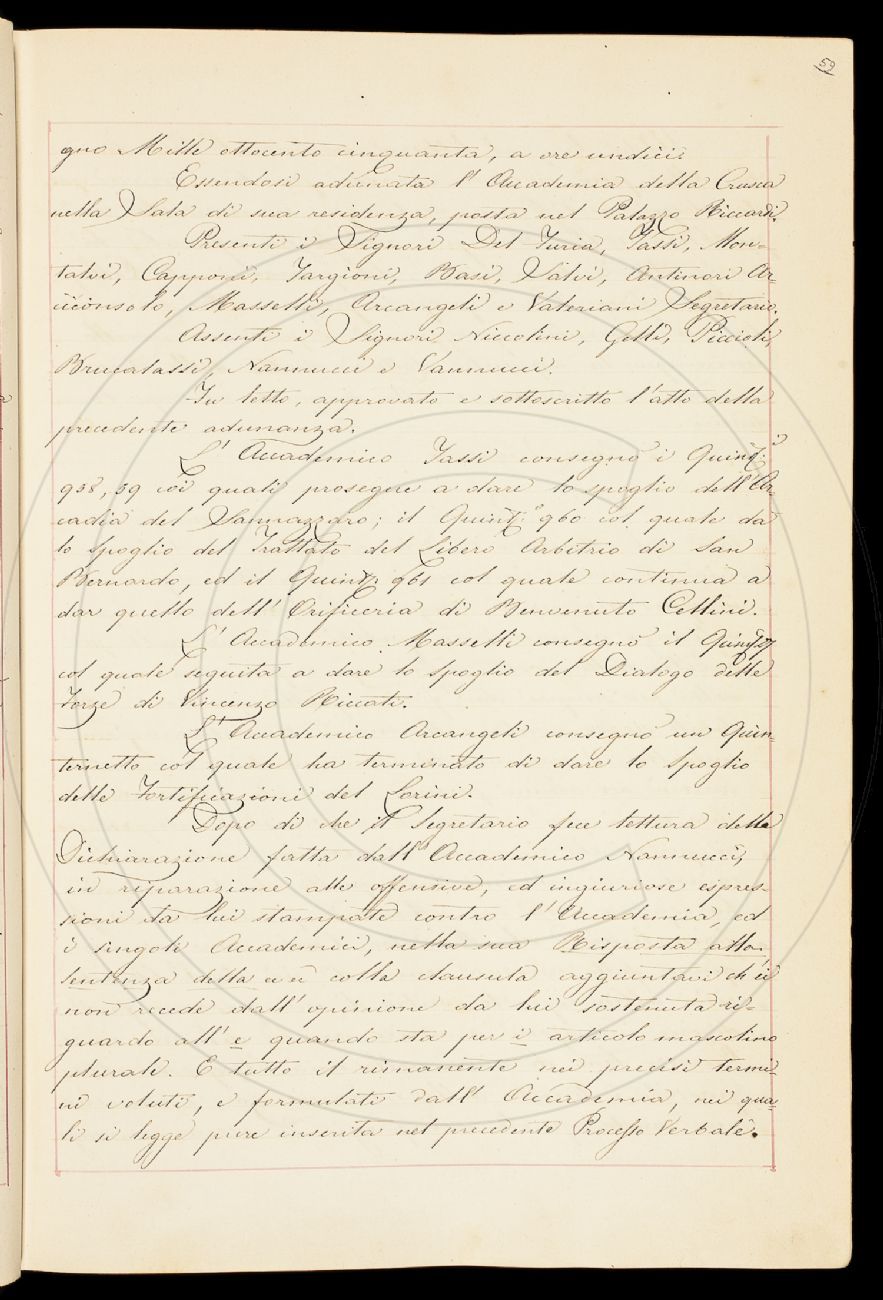 59
gno Mille ottocento cinquanta, a ore undici.
Essendosi adunata l'Accademia della Crusca
nella Sala di sua residenza, posta nel Palazzo Riccardi.
Presenti i Signori Del Furia, Tassi, Mon-
talvi, Capponi, Targioni, Basi, Salvi, Antinori Ar-
ciconsolo, Masselli, Arcangeli e Valeriani Segretario.
Assenti i Signori Niccolini, Gelli, Piccioli,
Brucalassi, Nannucci e Vannucci.
Fu letto, approvato e sottoscritto l'atto della
precedente adunanza.
L'Accademico Tassi consegnò i Quint.ⁱ
958, 59 coi quali prosegue a dare lo spoglio dell'Ar-
cadia del Sannazzaro; il Quint.º 960 col quale dà
lo spoglio del Trattato del Libero Arbitrio di San
Bernardo, ed il Quint.º 961 col quale continua a
dar quello dell'Orificeria di Benvenuto Cellini.
L'Accademico Masselli consegnò il
col quale seguita a dare lo spoglio del Dialogo delle
Forze di Vincenzo Riccati.
L'Accademico Arcangeli consegnò un Quin-
ternetto col quale ha terminato di dare lo spoglio
delle Fortificazioni del Lorini.
Dopo di che il Segretario fece lettura della
Dichiarazione fatta dall'Accademico Nannucci,
in riparazione alle offensive, ed ingiuriose espres-
sioni da lui stampate contro l'Accademia, ed
i singoli Accademici, nella sua Risposta alla
Sentenza della colla clausula aggiuntavi ch'ei
non recede dall'opinione da lui sostenuta ri-
guardo all'e quando sta per i articolo mascolino
plurale. E tutto il rimanente nei precisi termi
ni voluti, e formulati dall'Accademia, nei qua-
li si legge pure inserita nel precedente Processo Verbale.